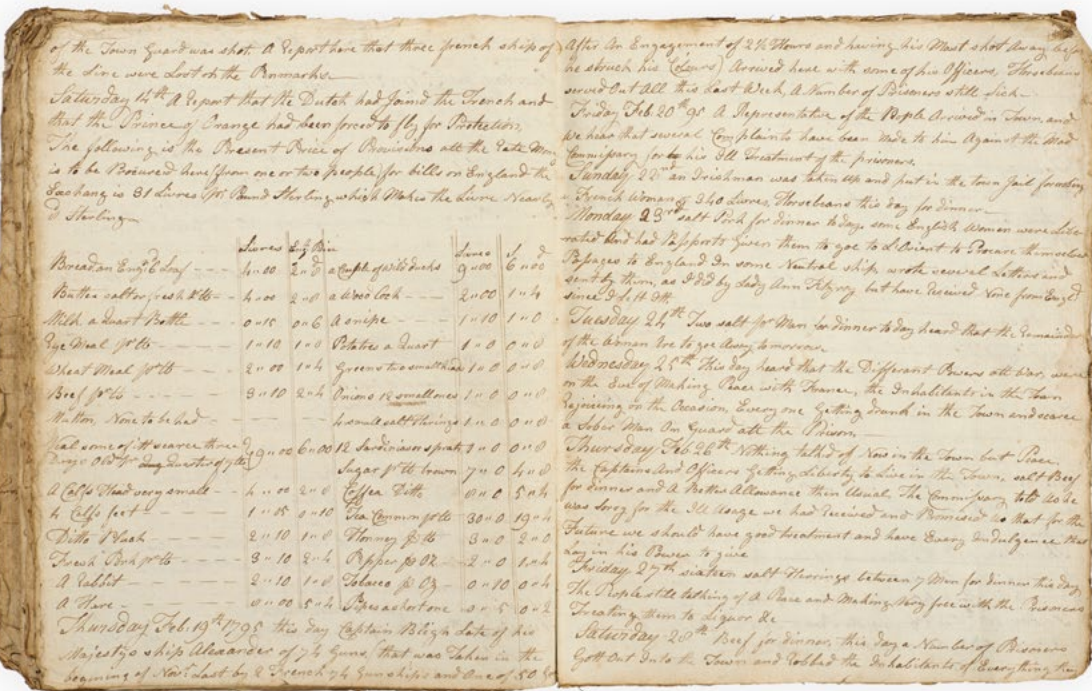 of the Town Guard was shot. A Report here that three french ships of
the Line were Lost on the Penmarks.
Saturday 14th A Report that the Dutch had Joined the French and
that the Prince of Orange had been forced to fly for Protection,
The following is the Present Price of Provisions att the Rate
is to be Procured here (from one or two people) for bills on England the
Exchang is 31 Livres pr Pound Sterling which Makes the Livre Nearly
d Sterling
Livres Engh Livres S d
Bread an Engh 6 Loaf 4"00 2"8 a Couple of Wild ducks 9"00 6"00
Butter salt or fresh pr lb 4"00 2"8 a Wood Cock 2"00 1"4
Milk a Quart Bottle 0"15 0"6 A snipe 1"10 1"0
Rye Meal pr lb 1"10 1"0 Potatoes a Quart 1"0 0"8
Wheat Meal pr lb 2"00 1"4 Greens two small 1"0 0"8
Beef pr lb 3"10 2"4 Onions 12 small ones 1"0 0"8
Mutton, None to be had 4 small salt Herrings 1"0 0"8
Veal some of itt scarce three 9"00 6"00 12 Sardinias or sprats 1"0 0"8
Days Old pr Quarter of 7 lb Sugar pr lb brown 7"0 4"8
A Calfs Head very small 4"00 2"8 Coffea Ditto 8"0 5"4
4 Calfs feet 1"05 0"10 Tea Common pr lb 30"0 19"4
Ditto Pluck 2"10 1"8 Honney pr lb 3"0 2"0
Fresh Pork pr lb 3"10 2"4 Pepper pr Oz 2"0 1"4
A Rabbit 2"10 1"8 Tobaco pr Oz 0"10 0"4
A Hare 8"00 5"4 Pipes a short one 0"5 0"2
Thursday Feb. 19th 1795 this day Captain Bligh Late of his
Majestys ship Alexander of 74 Guns, that was Taken in the
begening of Novr Last by 2 French 74 Gun ships and One of 50
After An Engagement of 2½ Hours and having his Mast shot Away before
he struck his (Colours) Arrived here with some of his Officers, Horsebeans
served Out All this last Week, A Number of Prisoners still sick
Friday Feb 20th 95 A Representative of the People Arrived in Town, and
We hear that several Complaints have been Made to him Against the Mad
Commissary for his Ill Treatment of the prisoners.
Sunday 22nd an Irishman was taken up and put in the town Jail for robing
a French Woman of 340 Livres, Horsebeans this day for dinner
Monday 23rd salt Pork for dinner to day, some English Women were Libe-
rated And had Passports Given them to goe to L'Orient to Procure themselves
Passages to England In some Neutral ship, wrote several Letters and
sent by them, as I did by Lady Ann Fitzroy but have Received None from Engld
since I Left itt
Tuesday 24th Two salt pr Man for dinner to day heard that the Remainder
of the Woman are to goe Away tomorrow
Wednesday 25th This day heard that the Different Powers att War, were
on the Eve of Making Peace with France, the Inhabitants in the Town
Rejoicing on the Occasion, Every one Getting drunk in the Town and scarce
a Sober Man On Guard att the Prison.
Thursday Feb 26th Nothing talked of Now in the Town but Peace,
the Captains And Officers Getting Liberty to Live in the Town, salt Beef
for dinner and A Better Allowance then Usual. The Commissary told us he
was Sorry for the Ill Usage we had Received and Promised us that for the
Future we should have good treatment and have Every Indulgence that
Lay in his Power to give
Friday 27th sixteen salt Herrings between 7 Men for dinner this day
The People still talking of A Peace and Making Very free with the Prisoners
Treating them to Liquor &c
Saturday 28th Beef for dinner, this day a Number of Prisoners
Gott Out Into the Town and Robbed the Inhabitants of Everything they